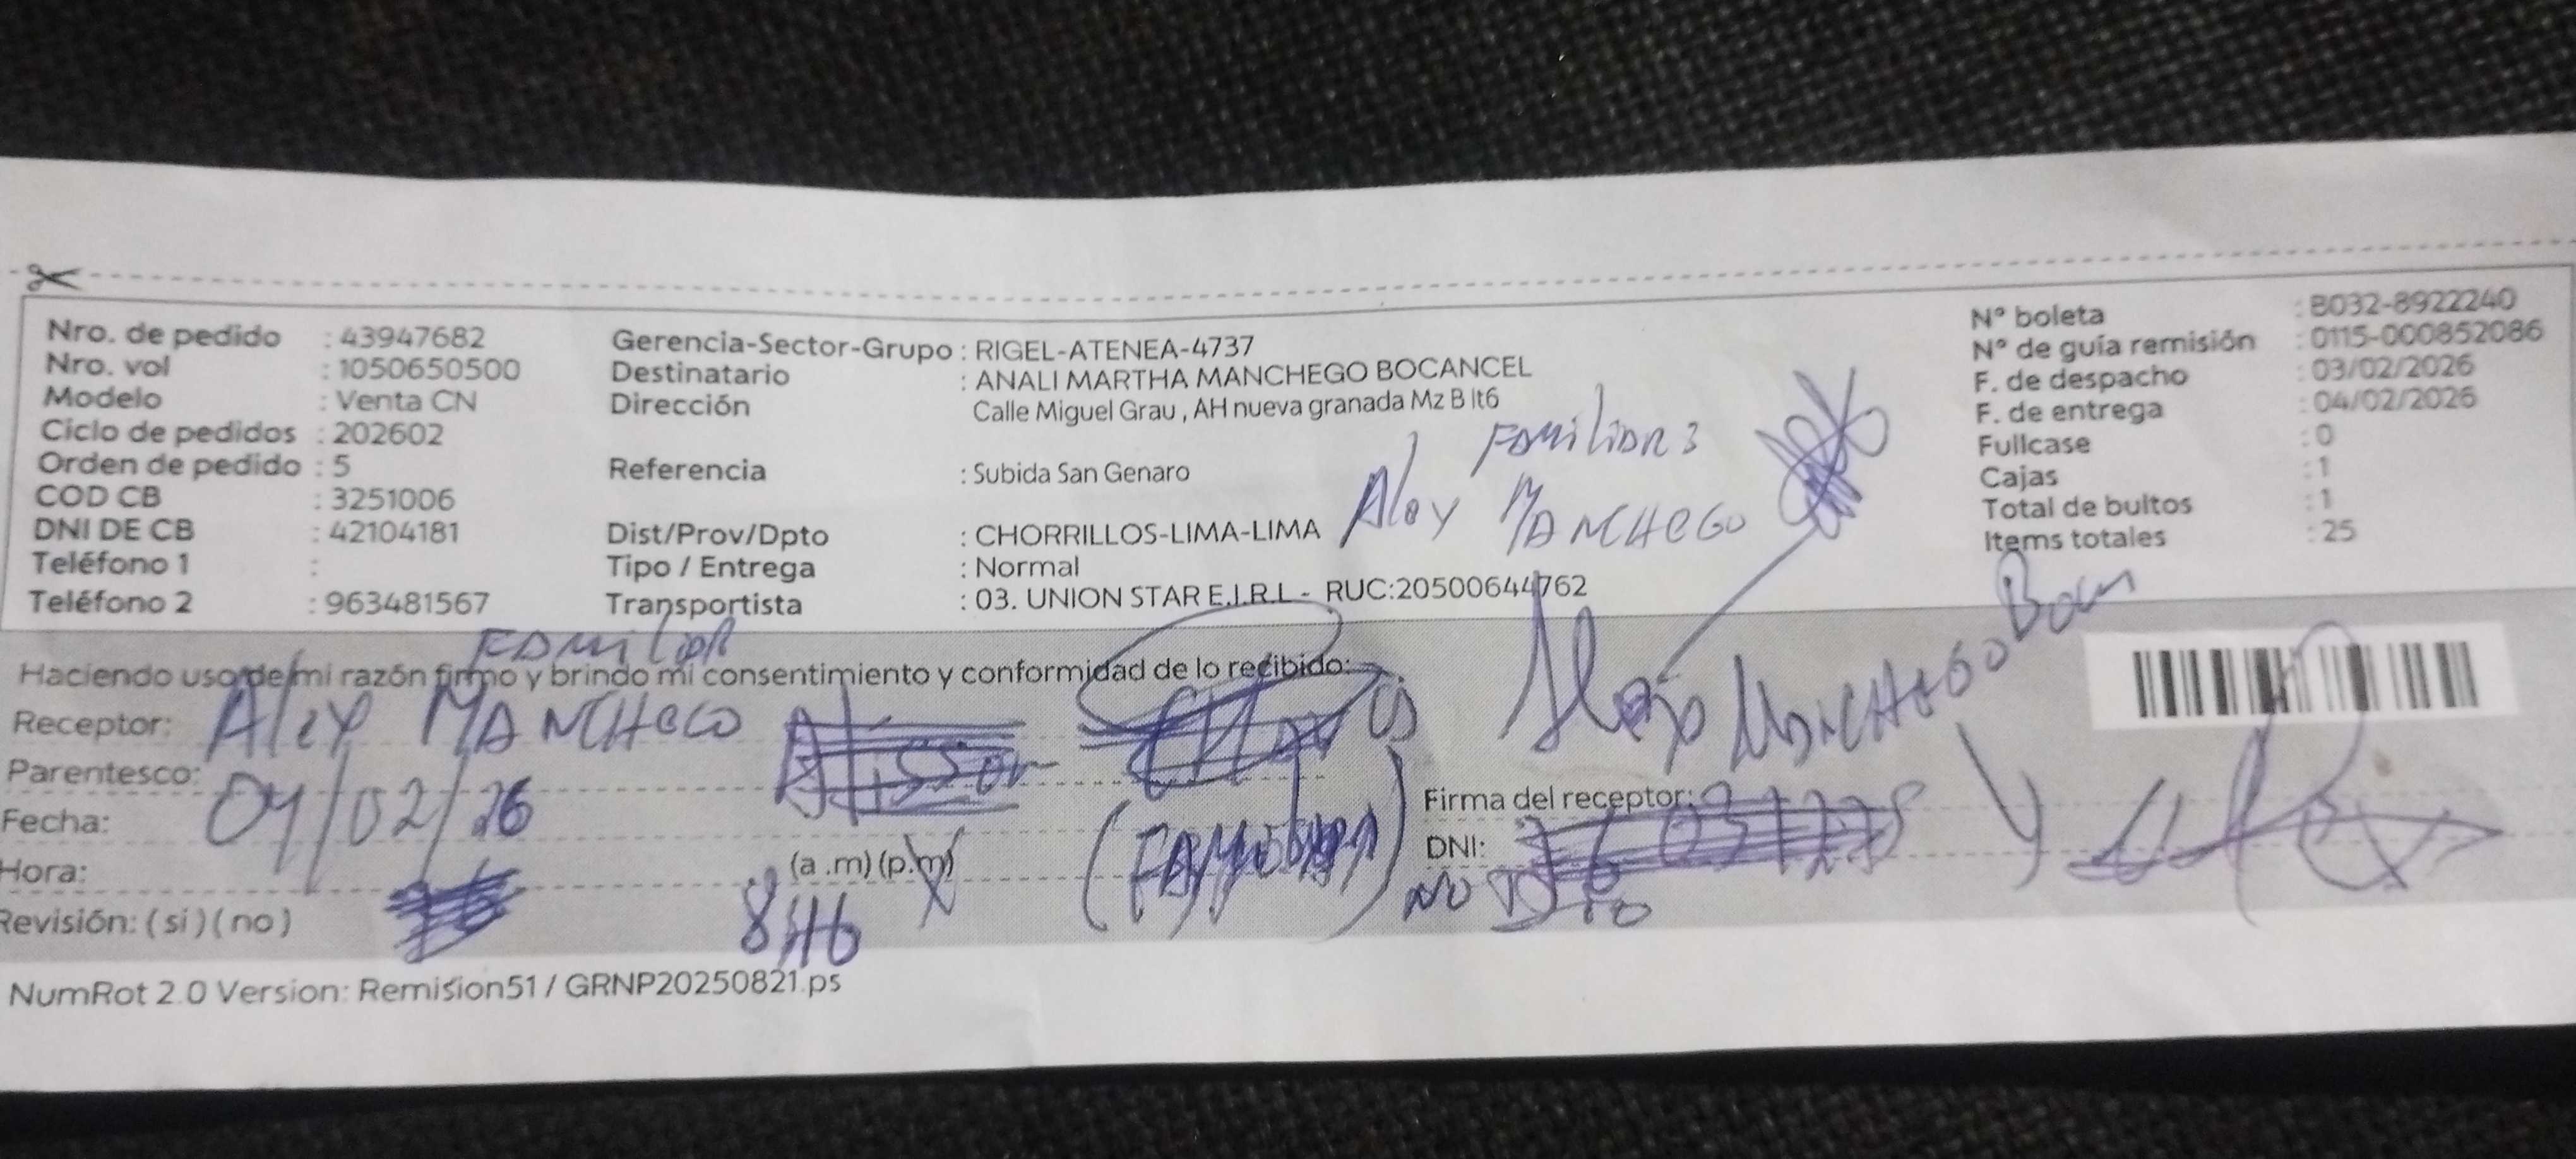 Nro. de pedido : 43947682
Nro. vol : 1050650500
Modelo : Venta CN
Ciclo de pedidos : 202602
Orden de pedido : 5
COD CB : 3251006
DNI DE CB : 42104181
Teléfono 1 :
Teléfono 2 : 963481567
Gerencia-Sector-Grupo : RIGEL-ATENEA-4737
Destinatario : ANALI MARTHA MANCHEGO BOCANCEL
Dirección Calle Miguel Grau , AH nueva granada Mz B lt6
Referencia : Subida San Genaro
Dist/Prov/Dpto : CHORRILLOS-LIMA-LIMA
Tipo / Entrega : Normal
Transportista : 03. UNION STAR E.I.R.L - RUC:20500644762
Nº boleta : B032-8922240
Nº de guía remisión : 0115-000852086
F. de despacho : 03/02/2026
F. de entrega : 04/02/2026
Fullcase : 0
Cajas : 1
Total de bultos : 1
Items totales : 25
FAMILIAR
Alex MANCHEGO
FAMILIAR
Haciendo uso de mi razón firmo y brindo mi consentimiento y conformidad de lo recibido:
Receptor: Alex MANCHEGO
MANCHEGO
Parentesco:
Fecha: 04/02/26
Firma del receptor:
DNI:
NO DIO
Hora: (a .m) (p.m)
846
Revisión: ( si ) ( no )
NumRot 2.0 Version: Remision51 / GRNP20250821.ps